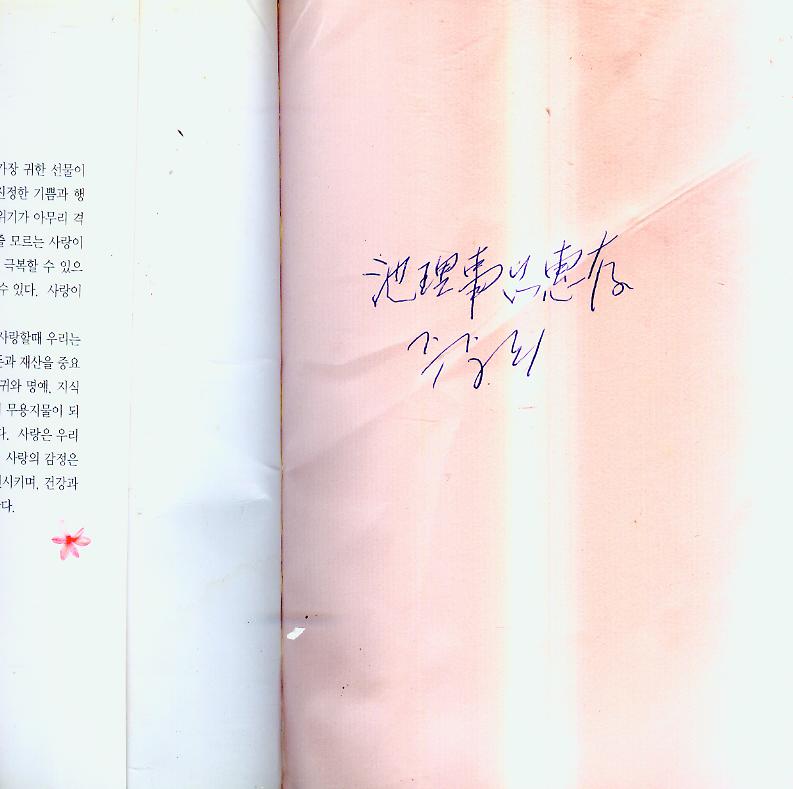 가장 귀한 선물이
진정한 기쁨과 행
위기가 아무리 격
줄 모르는 사랑이
극복할 수 있으
수 있다. 사랑이
사랑할때 우리는
돈과 재산을 중요
귀와 명예, 지식
무용지물이 되
다. 사랑은 우리
사랑의 감정은
시키며, 건강과
다.
池理事 惠存